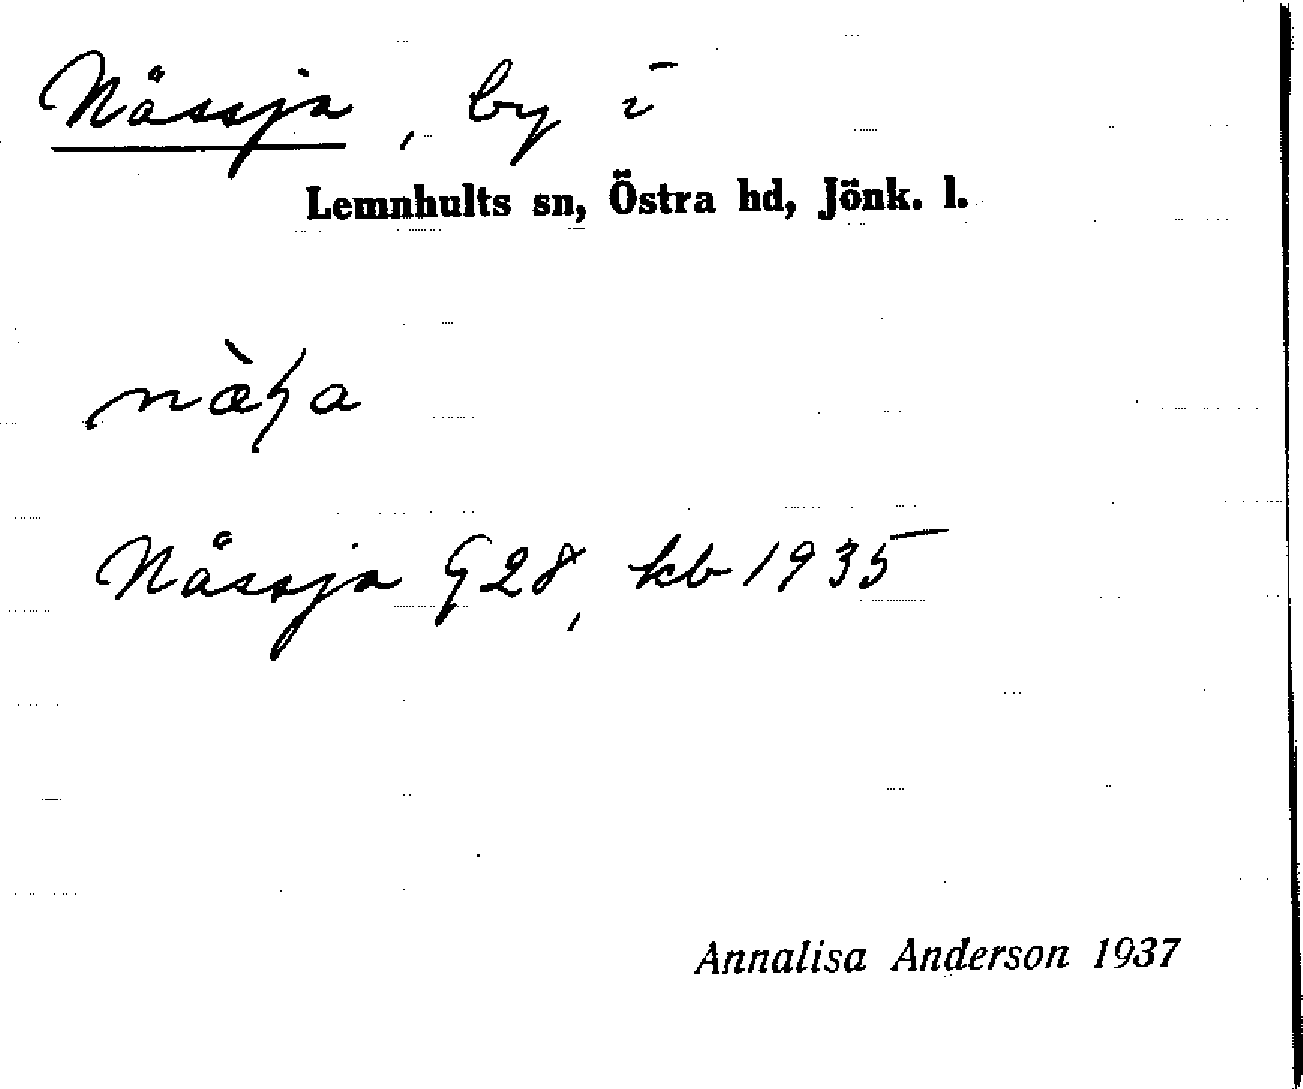 Nässja, by i
Lemnhults sn, Östra hd, Jönk. l.
Nässja G28, kb 1935
Annalisa Anderson 1937